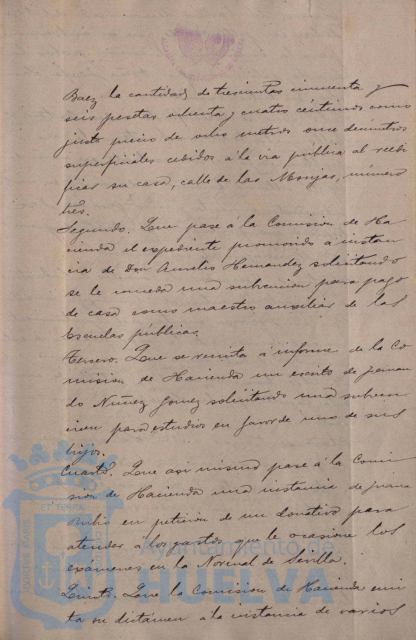 Baez la cantidad de trescientas cincuenta y
seis pesetas ochenta y cuatro céntimos como
justo precio de ocho metros once decímetros
superficiales cedidos á la via pública al recti
ficar su casa, calle de las Monjas, número
tres.
Segundo. Que pase á la Comision de Ha
cienda el expediente promovido á instan
cia de Don Aurelio Hernandez solicitando
se le conceda una subvencion para pago
de casa como maestro auxiliar de las
Escuelas públicas.
Tercero. Que se remita á informe de la Co
mision de Hacienda un escrito de Fernan
do Nuñez Gomez solicitando una subven
cion para estudios en favor de uno de sus
hijos.
Cuarto. Que asi mismo pase á la Comi
sion de Hacienda una instancia de Juana
Rubio en peticion de un donativo para
atender á los gastos que le ocasione los
exámenes en la Normal de Sevilla.
Quinto. Que la Comision de Hacienda emi
ta su dictámen á la instancia de varios
Ayuntamiento de
HUELVA